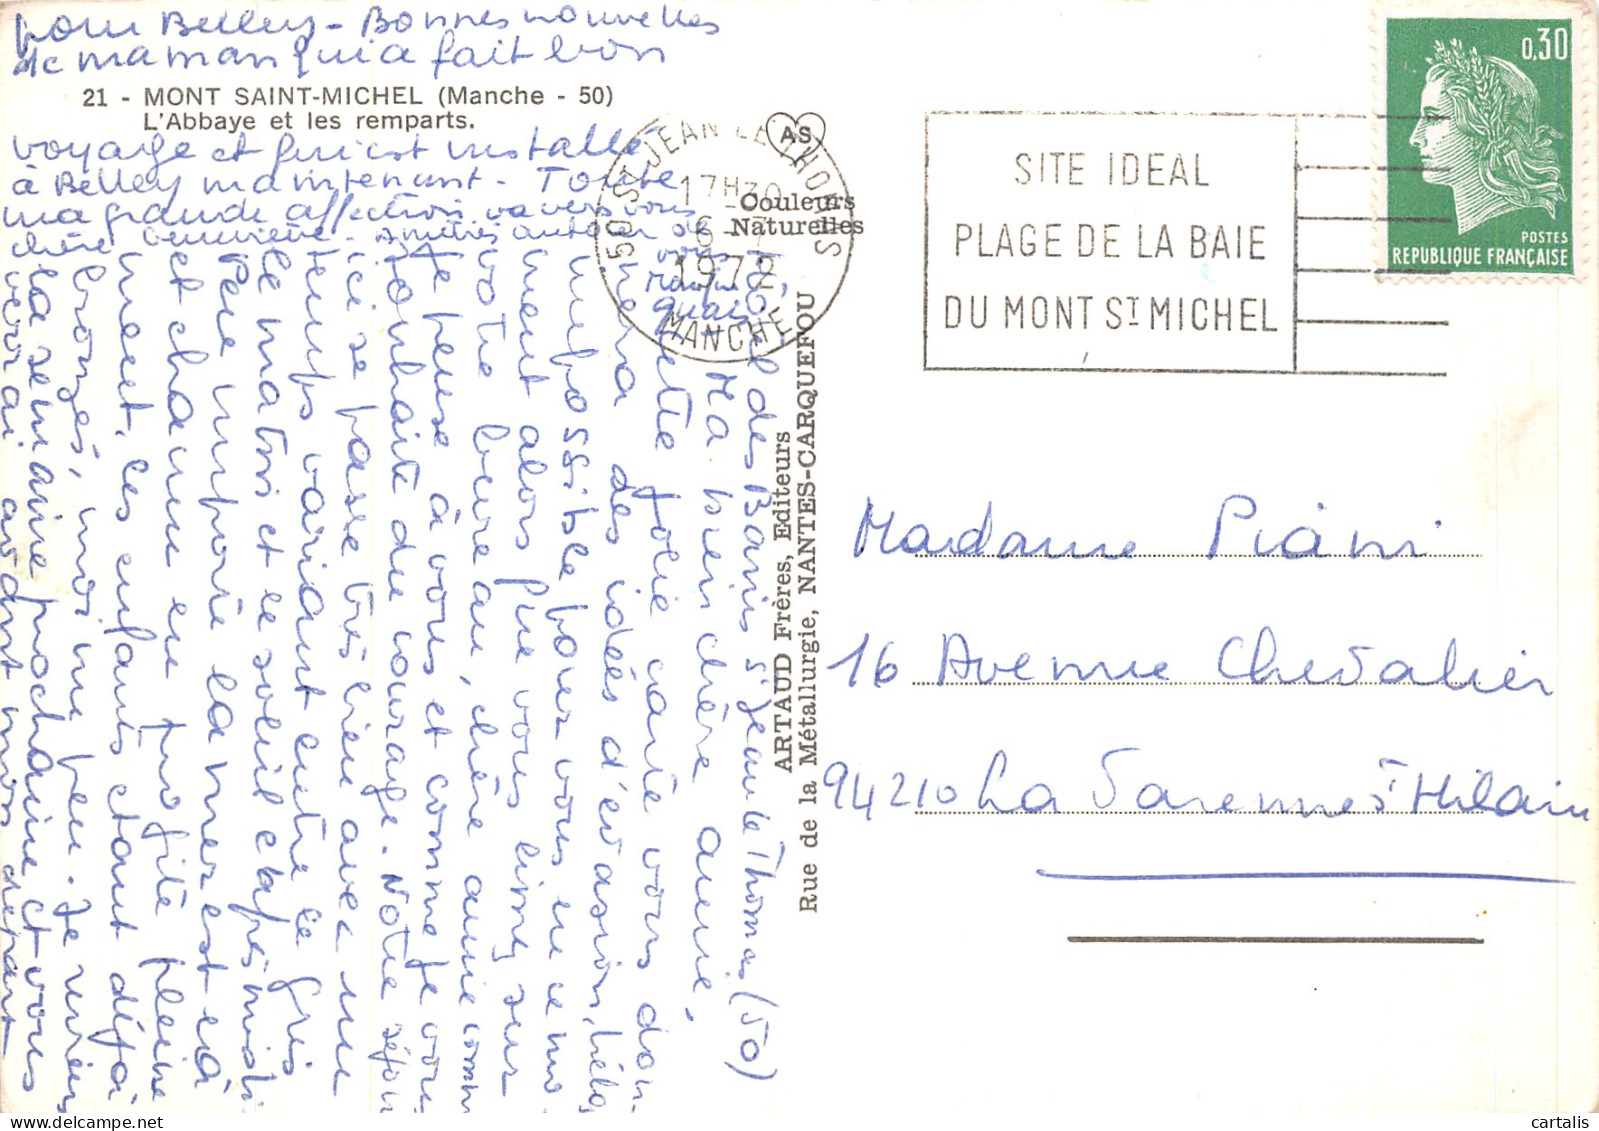 Hôtel des Bains St Jean le Thomas (50)
Ma bien chère amie,
Cette jolie carte vous don-
nera des idées d'évasion, hélas
impossible pour vous en ce mo
ment alors que vous limez sur
votre bureau, chère amie comme
Je pense à vous et comme je vous
souhaite du courage. Notre séjour
ici se passe très bien avec un
temps variant entre le gris
le matin et le soleil l'après midi
Peu importe la mer est là
et chacun en profite pleine
ment, les enfants étant déjà
bronzés, moi un peu. Je reviens
la semaine prochaine et vous
verrai avant mon départ
pour Belley - Bonnes nouvelles
de maman qui a fait bon
voyage et qui est installée
à Belley maintenant. Toute
ma grande affection va vers vous
chère Amitiés autour de
vous
21 - MONT SAINT-MICHEL (Manche - 50)
L'Abbaye et les remparts.
AS
Couleurs
Naturelles
50 ST JEAN LE THOMAS
17H30
6 - 7
1972
MANCHE
SITE IDEAL
PLAGE DE LA BAIE
DU MONT ST MICHEL
0,30
POSTES
REPUBLIQUE FRANÇAISE
ARTAUD Frères, Editeurs
Rue de la Métallurgie, NANTES-CARQUEFOU
Madame Piani
16 Avenue Chevalier
94210 La Varenne St Hilaire
cartalis